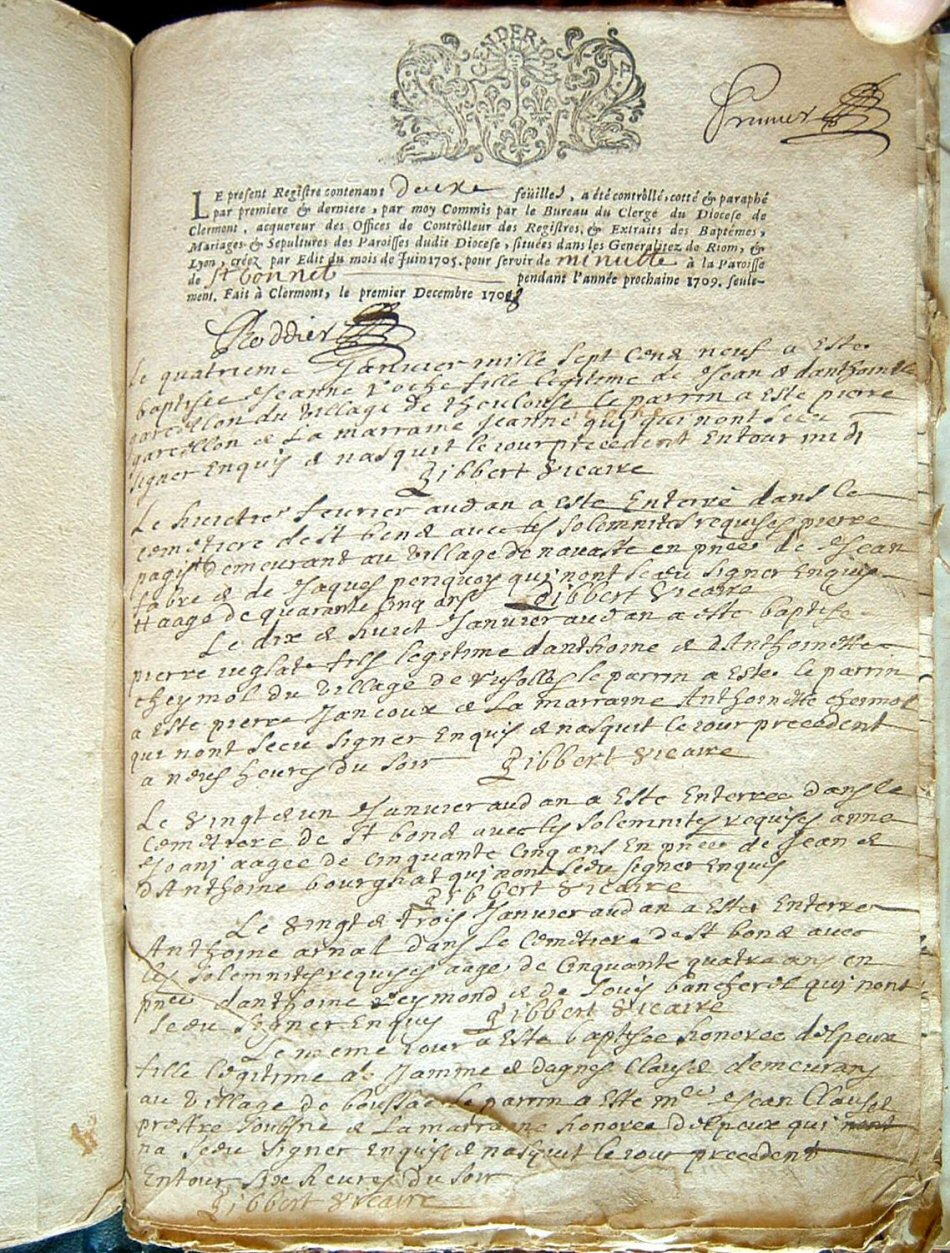 GENDERIOM
Prunier
LE present Registre contenant Douze feüilles, a été contrôllé, cotté & paraphé
par premiere & derniere, par moy Commis par le Bureau du Clergé du Diocese de
Clermont, acquereur des Offices de Contrôlleur des Registres, & Extraits des Baptêmes,
Mariages & Sepultures des Paroisses dudit Diocese, situées dans les Generalitez de Riom, &
Lyon, créez par Edit du mois de Juin 1705. pour servir de minutte à la Paroisse
de St bonnet pendant l'année prochaine 1709. seule-
ment. Fait à Clermont, le premier Decembre 1708
Roddier
Le quatrieme Janvier mille sept Cend neuf a Este
baptisee Jeanne fille legitime de Jean & danthoinette
gareillon du village de thoulouse le parrin a este pierre
gareillon & La marraine Jeanne qui nont sceu
signer Enquis & nasquit le jour precedent Entour midi
Gibbert Vicaire
Le huictieme feuvrier aud an a Este Enterré dans le
cemetiere de st bond avec les solemnites requises pierre
pagis demeurant au village de navaste en pnce de Jean
fabre & de Jaques qui nont sceu signer Enquis
aage de quarante cinq ans Gibbert Vicaire
Le dix & huict Janvier aud an a este baptise
pierre fils legitime danthoine & dAnthoinette
cheymol du village de le parrin a Este le parrin
a Este pierre Jancoux & La marraine Anthoinette chermol
qui nont sceu signer Enquis & nasquit le jour precedent
a neuf heures du soir Gibbert Vicaire
Le vingt & un Janvier aud an a Este Enterree dans le
Cemetiere de st bond avec les solemnites requises anne
aagee de cinquante cinq ans En pnce de Jean &
dAnthoine bourghat qui nont sceu signer Enquis
Gibbert Vicaire
Le vingt & trois Janvier aud an a Este Enterre
Anthoine arnal dans Le Cemetiere de st bond avec
les solemnites requises aage de cinquante quatre ans en
pnce danthoine veymond & de Louis qui nont
sceu signer Enquis Gibbert Vicaire
Le meme jour a Este baptisee honoree despeux
fille legitime a Jamme & dagnes Clausel demeurans
au village de le parrin a Este mre Jean Clausel
prestre & La marraine honoree despeux qui nont
na sceu signer Enquise & nasquit le jour precedent
Entour six heures du soir
Gibbert Vicaire